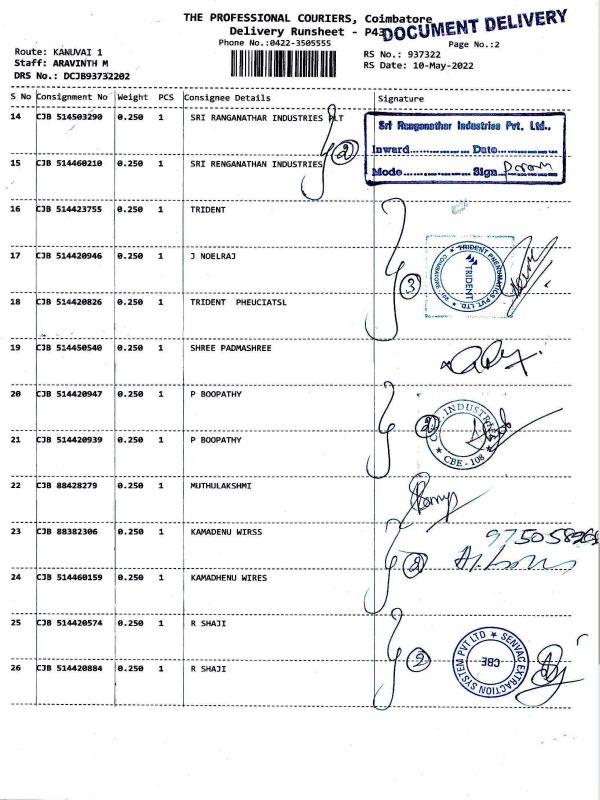 THE PROFESSIONAL COURIERS, Coimbatore
DOCUMENT DELIVERY
Delivery Runsheet - P43
Phone No.:0422-3505555
Page No.:2
Route: KANUVAI 1
Staff: ARAVINTH M
DRS No.: DCJB93732202
RS No.: 937322
RS Date: 10-May-2022
S No Consignment No Weight PCS Consignee Details Signature
14 CJB 514503290 0.250 1 SRI RANGANATHAR INDUSTRIES PLT
Sri Ranganathar Industries Pvt. Ltd.,
Inward.................. Date..................
Mode.................. Sign..................
2
15 CJB 514460210 0.250 1 SRI RENGANATHAN INDUSTRIES
16 CJB 514423755 0.250 1 TRIDENT
17 CJB 514420946 0.250 1 J NOELRAJ
TRIDENT PNEUMATICS PVT LTD.
TRIDENT
3
18 CJB 514420826 0.250 1 TRIDENT PHEUCIATSL
19 CJB 514450540 0.250 1 SHREE PADMASHREE
20 CJB 514420947 0.250 1 P BOOPATHY
2
INDUSTRIES
CBE - 108
21 CJB 514420939 0.250 1 P BOOPATHY
22 CJB 88428279 0.250 1 MUTHULAKSHMI
23 CJB 88382306 0.250 1 KAMADENU WIRSS
2
24 CJB 514460159 0.250 1 KAMADHENU WIRES
25 CJB 514420574 0.250 1 R SHAJI
2
SENVAC EXTRACTION SYSTEM PVT LTD
CBE
26 CJB 514420884 0.250 1 R SHAJI